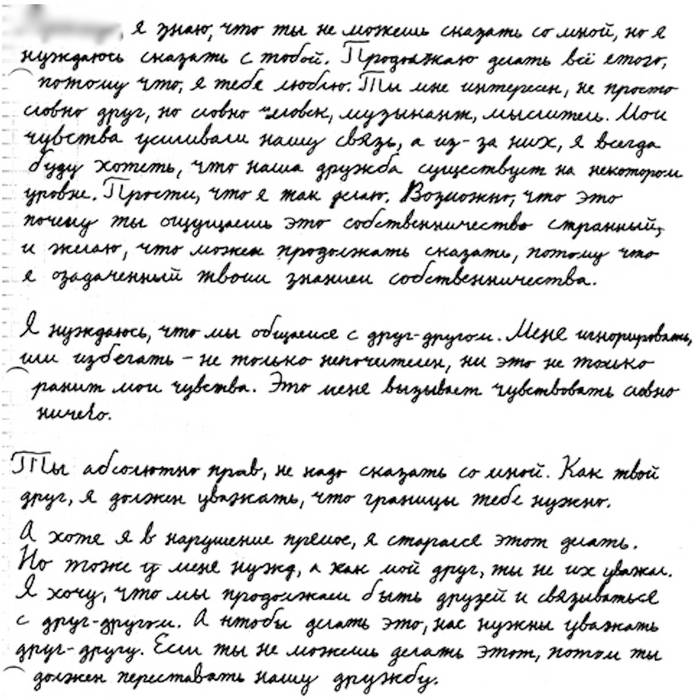 , я знаю, что ты не можешь сказать со мной, но я
нуждаюсь сказать с тобой. Продолжаю делать всё етого,
потому что, я тебе люблю. Ты мне интересен, не просто
словно друг, но словно человек, музыкант, мыслитель. Мои
чувства усиливали нашу связь, а из-за них, я всегда
буду хотеть, что наша дружба существует на некотором
уровне. Прости, что я так делаю. Возможно, что это
почему ты ощущаешь это собственничество странный,
и желаю, что можем продолжать сказать, потому что
я озадаченный твоим знанием собственничества.
Я нуждаюсь, что мы общаемся с друг-другом. Меня игнорировать,
или избегать – не только непочителен, ни это не только
ранит мои чувства. Это меня вызывает чувствовать словно
ничего.
Ты абсолютно прав, не надо сказать со мной. Как твой
друг, я должен уважать, что границы тебе нужно.
А хотя я в нарушение прямое, я старался этот делать.
Но тоже у меня нужд, а как мой друг, ты не их уважал.
Я хочу, что мы продолжаем быть друзей и связываться
с друг-другом. А чтобы делать это, нас нужны уважать
друг-другу. Если ты не можешь делать этот, потом ты
должен переставать нашу дружбу.